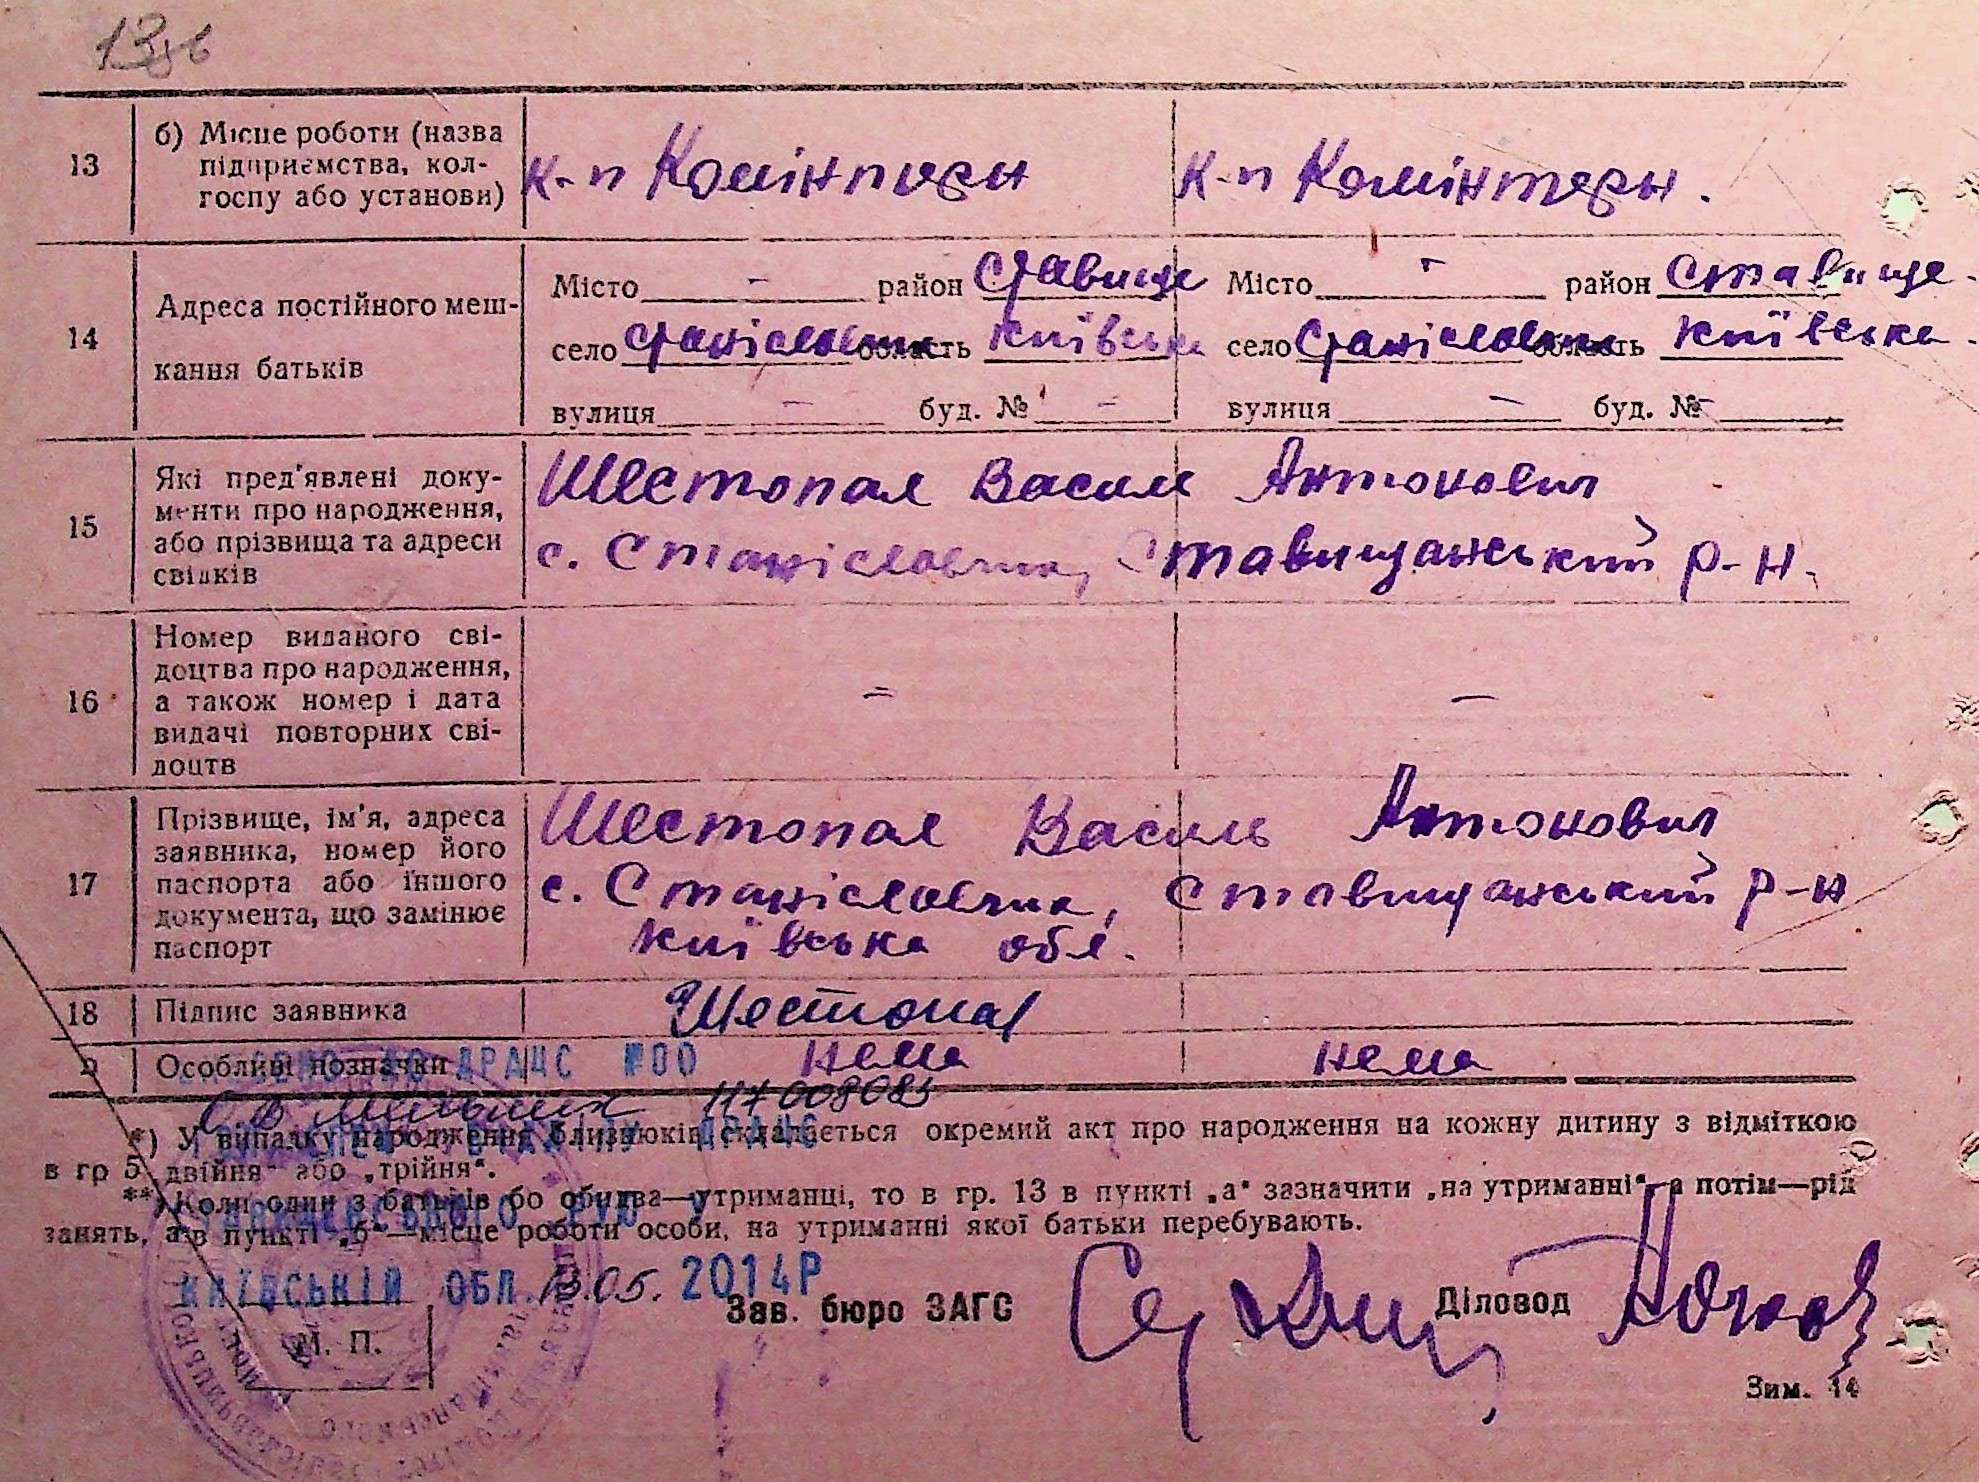 13
13 б) Місце роботи (назва підприємства, колгоспу або установи)
к-п Комінтерн
к-п Комінтерн.
14 Адреса постійного мешкання батьків
Місто - район Ставище
село Станіславчик область Київська
вулиця - буд. № -
Місто - район Ставище
село Станіславчик область Київська
вулиця - буд. № -
15 Які пред'явлені документи про народження, або прізвища та адреси свідків
Шестопал Василь Антонович
с. Станіславчик, Ставищанський р-н.
16 Номер виданого свідоцтва про народження, а також номер і дата видачі повторних свідоцтв
-
-
17 Прізвище, ім'я, адреса заявника, номер його паспорта або іншого документа, що замінює паспорт
Шестопал Василь Антонович
с. Станіславчик, Ставищанський р-н
Київська обл.
18 Підпис заявника
Шестопал
Особливі позначки
нема
нема
ДО ДРАЦС №00
117008083
ДРАЦС
*) У випадку народження близнюків складається окремий акт про народження на кожну дитину з відміткою
в гр 5 „двійня“ або „трійня“.
**) Коли один з батьків бо обидва—утриманці, то в гр. 13 в пункті „а“ зазначити „на утриманні“ а потім—рід
занять, а в пункті „б“—місце роботи особи, на утриманні якої батьки перебувають.
КИЇВСЬКІЙ ОБЛ. 13.05. 2014Р
Зав. бюро ЗАГС
Діловод
М. П.
Зим. 14